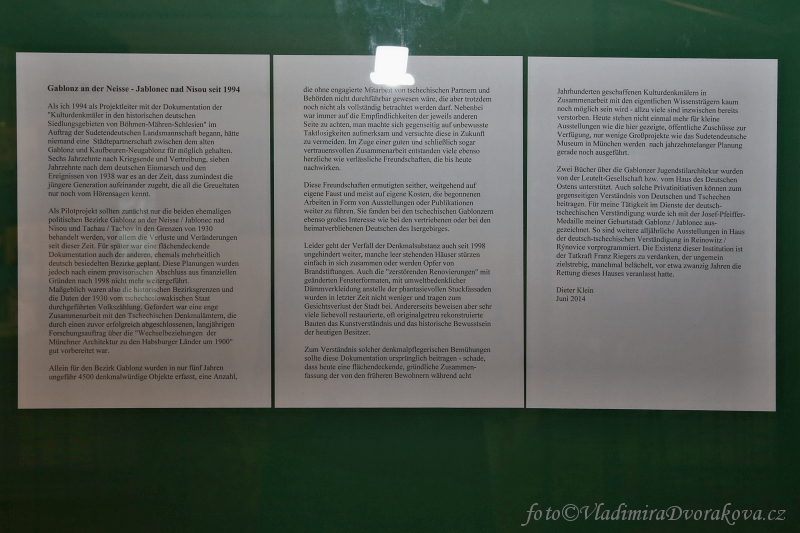 Gablonz an der Neisse - Jablonec nad Nisou seit 1994
Als ich 1994 als Projektleiter mit der Dokumentation der
"Kulturdenkmäler in den historischen deutschen
Siedlungsgebieten von Böhmen-Mähren-Schlesien" im
Auftrag der Sudetendeutschen Landsmannschaft begann, hätte
niemand eine Städtepartnerschaft zwischen dem alten
Gablonz und Kaufbeuren-Neugablonz für möglich gehalten.
Sechs Jahrzehnte nach Kriegsende und Vertreibung, sieben
Jahrzehnte nach dem deutschen Einmarsch und den
Ereignissen von 1938 war es an der Zeit, dass zumindest die
jüngere Generation aufeinander zugeht, die all die Greueltaten
nur noch vom Hörensagen kennt.
Als Pilotprojekt sollten zunächst nur die beiden ehemaligen
politischen Bezirke Gablonz an der Neisse / Jablonec nad
Nisou und Tachau / Tachov in den Grenzen von 1930
behandelt werden, vor allem die Verluste und Veränderungen
seit dieser Zeit. Für später war eine flächendeckende
Dokumentation auch der anderen, ehemals mehrheitlich
deutsch besiedelten Bezirke geplant. Diese Planungen wurden
jedoch nach einem provisorischen Abschluss aus finanziellen
Gründen nach 1998 nicht mehr weitergeführt.
Maßgeblich waren also die historischen Bezirksgrenzen und
die Daten der 1930 vom tschechoslowakischen Staat
durchgeführten Volkszählung. Gefordert war eine enge
Zusammenarbeit mit den Tschechischen Denkmalämtern, die
durch einen zuvor erfolgreich abgeschlossenen, langjährigen
Forschungsauftrag über die "Wechselbeziehungen der
Münchner Architektur zu den Habsburger Länder um 1900"
gut vorbereitet war.
Allein für den Bezirk Gablonz wurden in nur fünf Jahren
ungefähr 4500 denkmalwürdige Objekte erfasst, eine Anzahl,
die ohne engagierte Mitarbeit von tschechischen Partnern und
Behörden nicht durchführbar gewesen wäre, die aber trotzdem
noch nicht als vollständig betrachtet werden darf. Nebenbei
war immer auf die Empfindlichkeiten der jeweils anderen
Seite zu achten, man machte sich gegenseitig auf unbewusste
Taktlosigkeiten aufmerksam und versuchte diese in Zukunft
zu vermeiden. Im Zuge einer guten und schließlich sogar
vertrauensvollen Zusammenarbeit entstanden viele ebenso
herzliche wie verlässliche Freundschaften, die bis heute
nachwirken.
Diese Freundschaften ermutigten seither, weitgehend auf
eigene Faust und meist auf eigene Kosten, die begonnenen
Arbeiten in Form von Ausstellungen oder Publikationen
weiter zu führen. Sie fanden bei den tschechischen Gablonzern
ebenso großes Interesse wie bei den vertriebenen oder bei den
heimatverbliebenen Deutschen des Isergebirges.
Leider geht der Verfall der Denkmalsubstanz auch seit 1998
ungehindert weiter, manche leer stehenden Häuser stürzen
einfach in sich zusammen oder werden Opfer von
Brandstiftungen. Auch die "zerstörenden Renovierungen" mit
geänderten Fensterformaten, mit umweltbedenklicher
Dämmverkleidung anstelle der phantasievollen Stuckfassaden
wurden in letzter Zeit nicht weniger und tragen zum
Gesichtsverlust der Stadt bei. Andererseits beweisen aber sehr
viele liebevoll restaurierte, oft originalgetreu rekonstruierte
Bauten das Kunstverständnis und das historische Bewusstsein
der heutigen Besitzer.
Zum Verständnis solcher denkmalpflegerischen Bemühungen
sollte diese Dokumentation ursprünglich beitragen - schade,
dass heute eine flächendeckende, gründliche Zusammen-
fassung der von den früheren Bewohnern während acht
Jahrhunderten geschaffenen Kulturdenkmälern in
Zusammenarbeit mit den eigentlichen Wissensträgern kaum
noch möglich sein wird - allzu viele sind inzwischen bereits
verstorben. Heute stehen nicht einmal mehr für kleine
Ausstellungen wie die hier gezeigte, öffentliche Zuschüsse zur
Verfügung, nur wenige Großprojekte wie das Sudetendeutsche
Museum in München werden nach jahrzehntelanger Planung
gerade noch ausgeführt.
Zwei Bücher über die Gablonzer Jugendstilarchitektur wurden
von der Leutelt-Gesellschaft bzw. vom Haus des Deutschen
Ostens unterstützt. Auch solche Privatinitiativen können zum
gegenseitigen Verständnis von Deutschen und Tschechen
beitragen. Für meine Tätigkeit im Dienste der deutsch-
tschechischen Verständigung wurde ich mit der Josef-Pfeiffer-
Medaille meiner Geburtstadt Gablonz / Jablonec aus-
gezeichnet. So sind weitere alljährliche Ausstellungen in Haus
der deutsch-tschechischen Verständigung in Reinowitz /
Rýnovice vorprogrammiert. Die Existenz dieser Institution ist
der Tatkraft Franz Riegers zu verdanken, der ungemein
zielstrebig, manchmal belächelt, vor etwa zwanzig Jahren die
Rettung dieses Hauses veranlasst hatte.
Dieter Klein
Juni 2014
foto©VladimiraDvorakova.cz